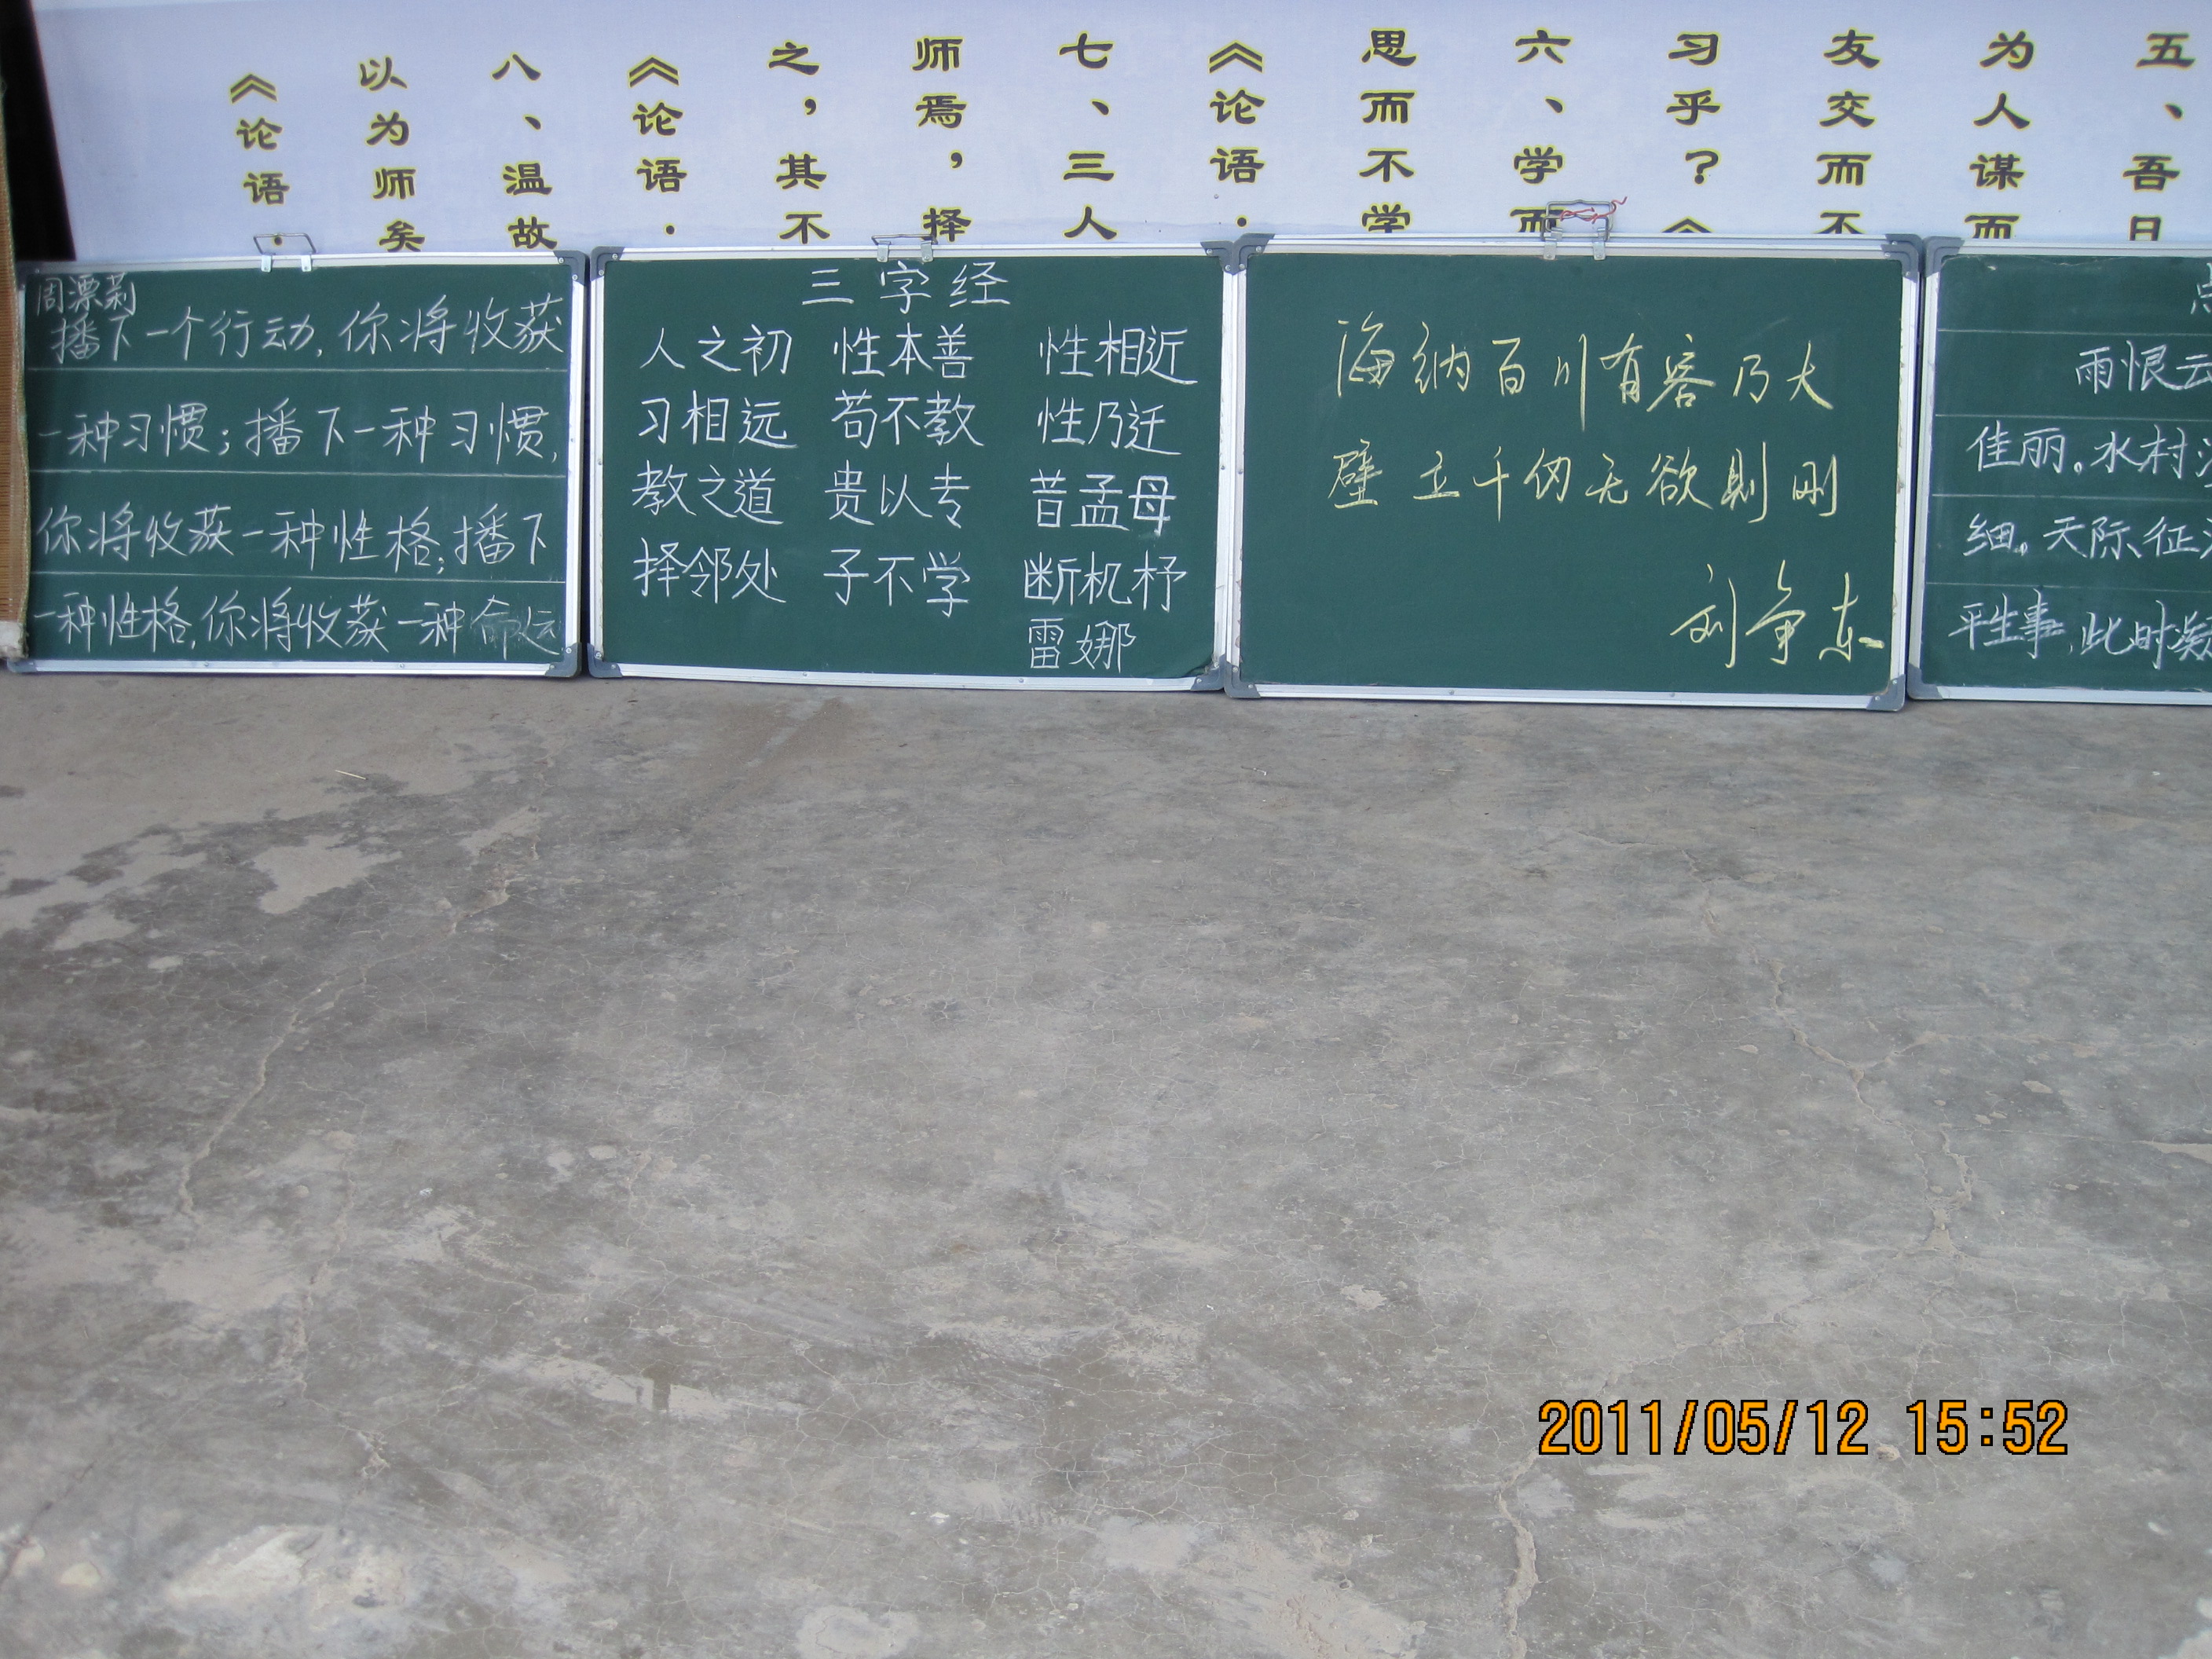 五、吾日
为人谋而
友交而不
习乎？《
六、学而
思而不学
《论语·
七、三人
师焉，择
之，其不
《论语·
八、温故
以为师矣
《论语·
周漂莉
播下一个行动，你将收获
一种习惯；播下一种习惯，
你将收获一种性格；播下
一种性格，你将收获一种命运
三字经
人之初 性本善 性相近
习相远 苟不教 性乃迁
教之道 贵以专 昔孟母
择邻处 子不学 断机杼
雷娜
海纳百川有容乃大
壁立千仞无欲则刚
刘争东
雨恨云
佳丽。水村
细。天际征
平生事，此时凝
2011/05/12 15:52